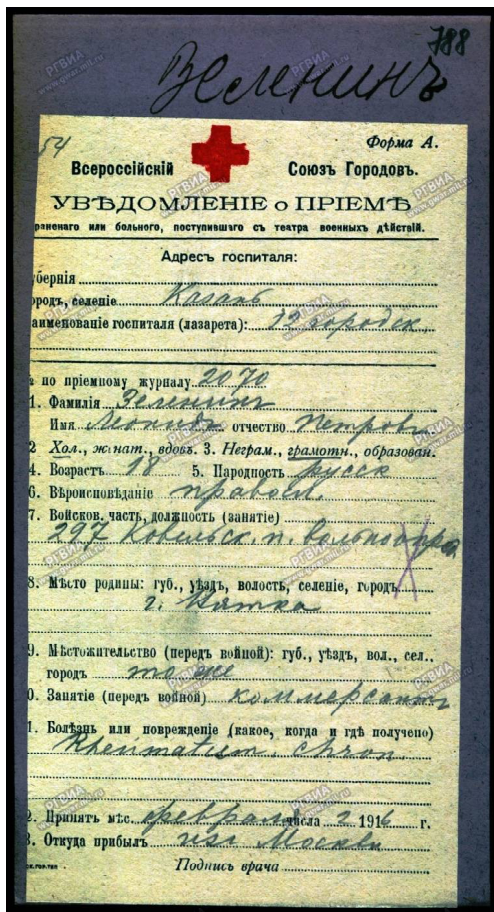 788
Зеленинъ
54
Форма А.
Всероссійскій Союзъ Городовъ.
УВѢДОМЛЕНІЕ о ПРІЕМѢ
раненаго или больного, поступившаго съ театра военныхъ дѣйствій.
Адресъ госпиталя:
убернія
ородъ, селеніе Казань
аименованіе госпиталя (лазарета): 12 городск.
№ по пріемному журналу 2070
1. Фамилія Зеленинъ
Имя Леонидъ отчество Петров
2 Хол., женат., вдовъ. 3. Неграм., грамотн., образован.
4. Возрастъ 18 5. Народность русск
6. Вѣроисповѣданіе правосл.
7. Войсков. часть, должность (занятіе)
297 Ковельск. п. вольноопр.
8. Мѣсто родины: губ., уѣздъ, волость, селеніе, городъ
г. Вятка
9. Мѣстожительство (передъ войной): губ., уѣздъ, вол., сел.,
городъ то же
0. Занятіе (передъ войной) коммерсантъ
1. Болѣзнь или поврежденіе (какое, когда и гдѣ получено)
Rheumatism. chron.
2. Принятъ мѣс. февраля числа 2 1916 г.
3. Откуда прибылъ изъ Москвы
Подпись врача
РГВИА
www.gwar.mil.ru